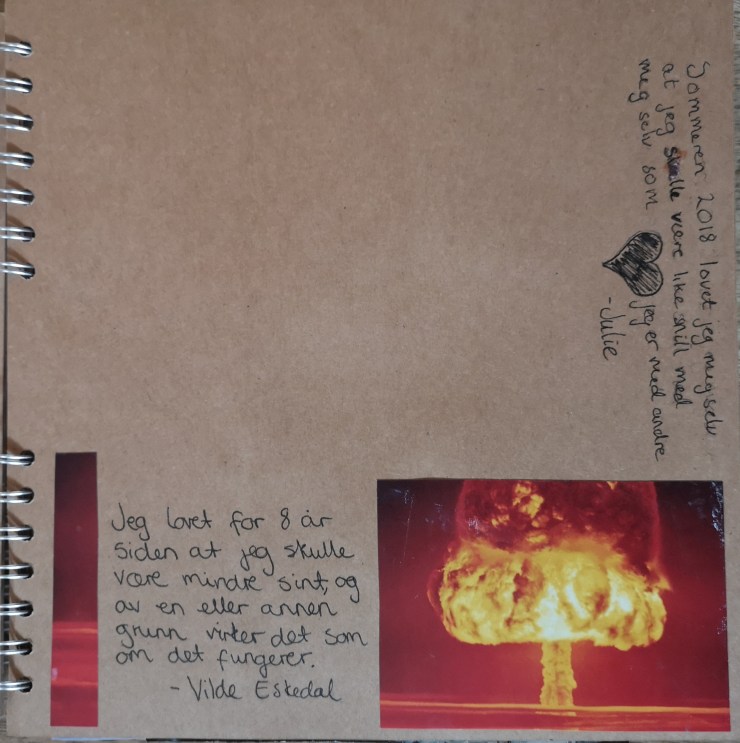 Sommeren 2018 lovet jeg meg selv
at jeg skulle være like snill med
meg selv som jeg er med andre
-Julie
Jeg lovet for 8 år
siden at jeg skulle
være mindre sint, og
av en eller annen
grunn virker det som
om det fungerer.
- Vilde Eskedal